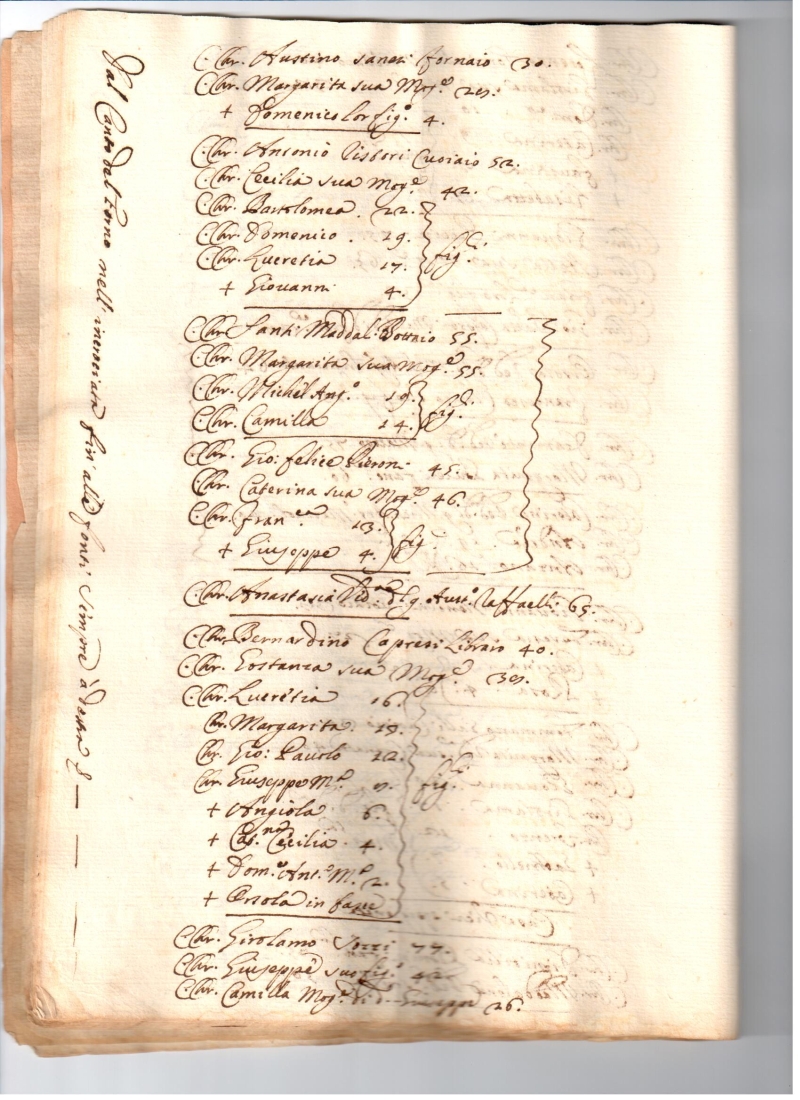 Dal Canto del Forno nell' incrociata fin alle fonti sempre à destra
C. Chr. Austino Sanesi fornaio 30.
C. Chr. Margarita sua Mog.e 29.
+ Domenico lor fig.o 4.
C. Chr. Antonio Pistori Cuoiaio 52.
C. Chr. Cecilia sua Mog.e 42.
C. Chr. Bartolomea. 22.
C. Chr. Domenico. 19.
C. Chr. Lucretia 17.
+ Giovanni 4.
fig.li
C. Chr. Santi Maddal. Bottaio 55.
C. Chr. Margarita sua Mog.e 55.
C. Chr. Michel Ang.o 19.
C. Chr. Camilla 14.
fig.
C. Chr. Gio: felice Pieroni 45.
C. Chr. Caterina sua Mog.e 46.
C. Chr. Fran.ca 13.
+ Giuseppe 4.
fig.
C. Chr. Anastasia Ved.a del q. Raffaelli 65.
C. Chr. Bernardino Capresi Libraio 40.
C. Chr. Gostanza sua Mog.e 39.
C. Chr. Lucretia 16.
Chr. Margarita.
Chr. Gio: Pauolo 12.
Chr. Giuseppe M.a 9.
+ Angiola 6.
+ Cat.na Cecilia. 4.
+ Dom.co Ant.o M.a 2.
+ Orsola in fasce
fig.li
C. Chr. Girolamo 77.
C. Chr. Giuseppe suo fig.o 42
C. Chr. Camilla Mog.e di d. Giuseppe 26.